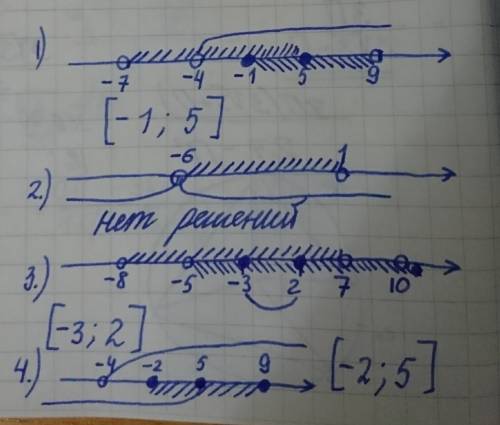 1)
-7 -4 -1 5 9
[-1; 5]
-6 1
2.)
нет решений
3.)
-8 -5 -3 2 7 10
[-3; 2]
4.)
-4 -2 5 9
[-2; 5]